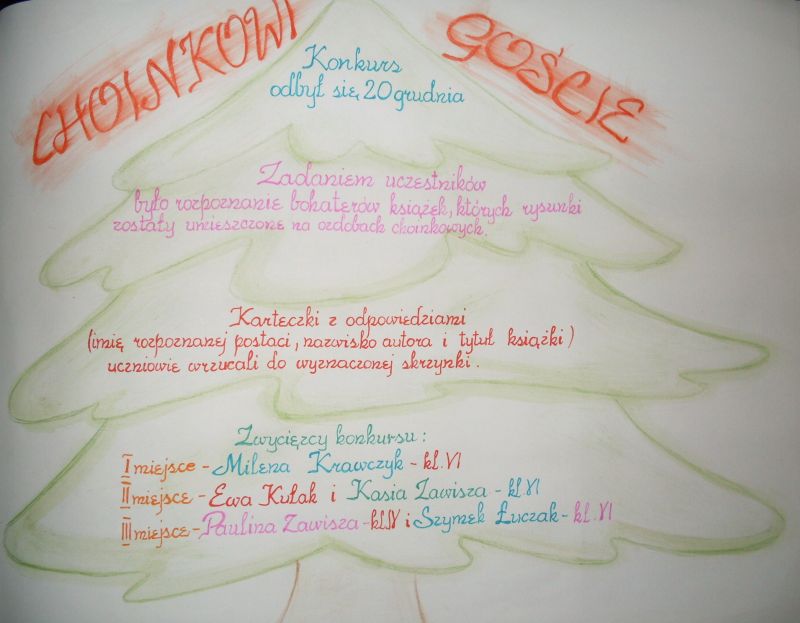 CHOINKOWI GOŚCIE
Konkurs
odbył się 20 grudnia
Zadaniem uczestników
było rozpoznanie bohaterów książek, których rysunki
zostały umieszczone na ozdobach choinkowych.
Karteczki z odpowiedziami
(imię rozpoznanej postaci, nazwisko autora i tytuł książki)
uczniowie wrzucali do wyznaczonej skrzynki.
Zwycięzcy konkursu:
I miejsce - Milena Krawczyk - kl. VI
II miejsce - Ewa Kułak i Kasia Zawisza - kl. VI
III miejsce - Paulina Zawisza - kl. IV i Szymek Łuczak - kl. VI